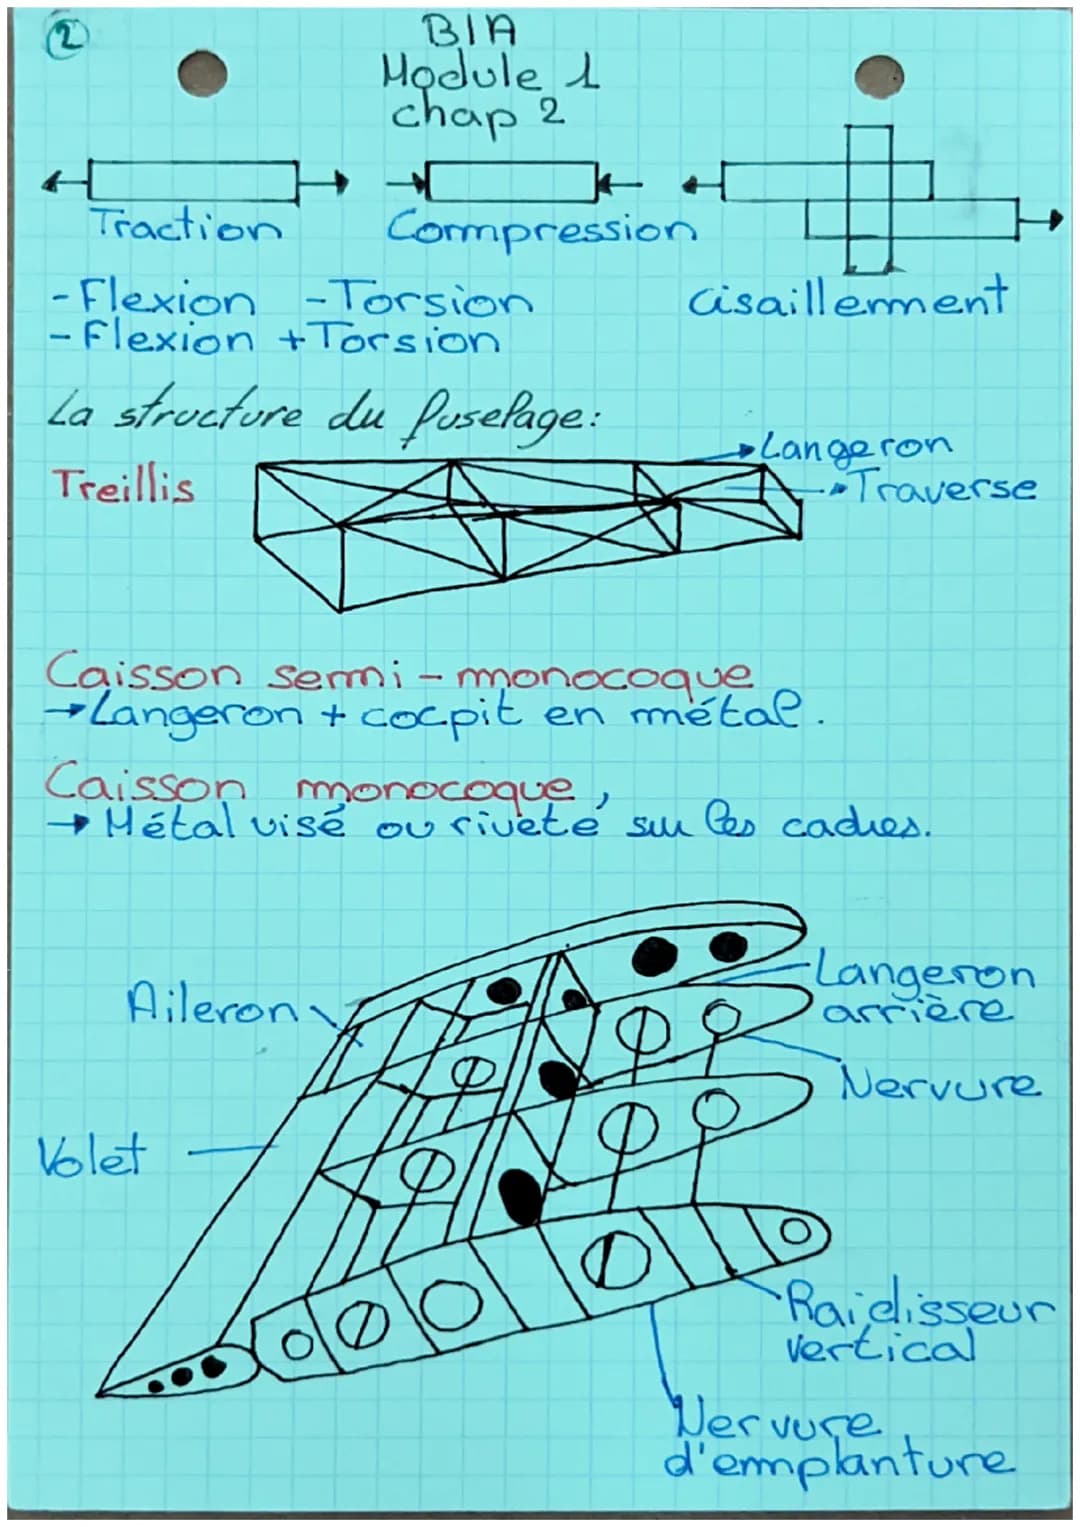 2
BIA
Module 1
chap 2
Traction
Commpression
cisaillemment
- Flexion - Torsion
- Flexion + Torsion
La structure du fuselage:
Treillis
Langeron
Traverse
Caisson semmi - monocoque
→ Langeron + cocpit en métal.
Caisson monocoque,
→ Métal visé ou riveté sur les cadres.
Aileron
Langeron
arrière
Nervure
Volet
Raidisseur
vertical
Nervure
d'emmplanture